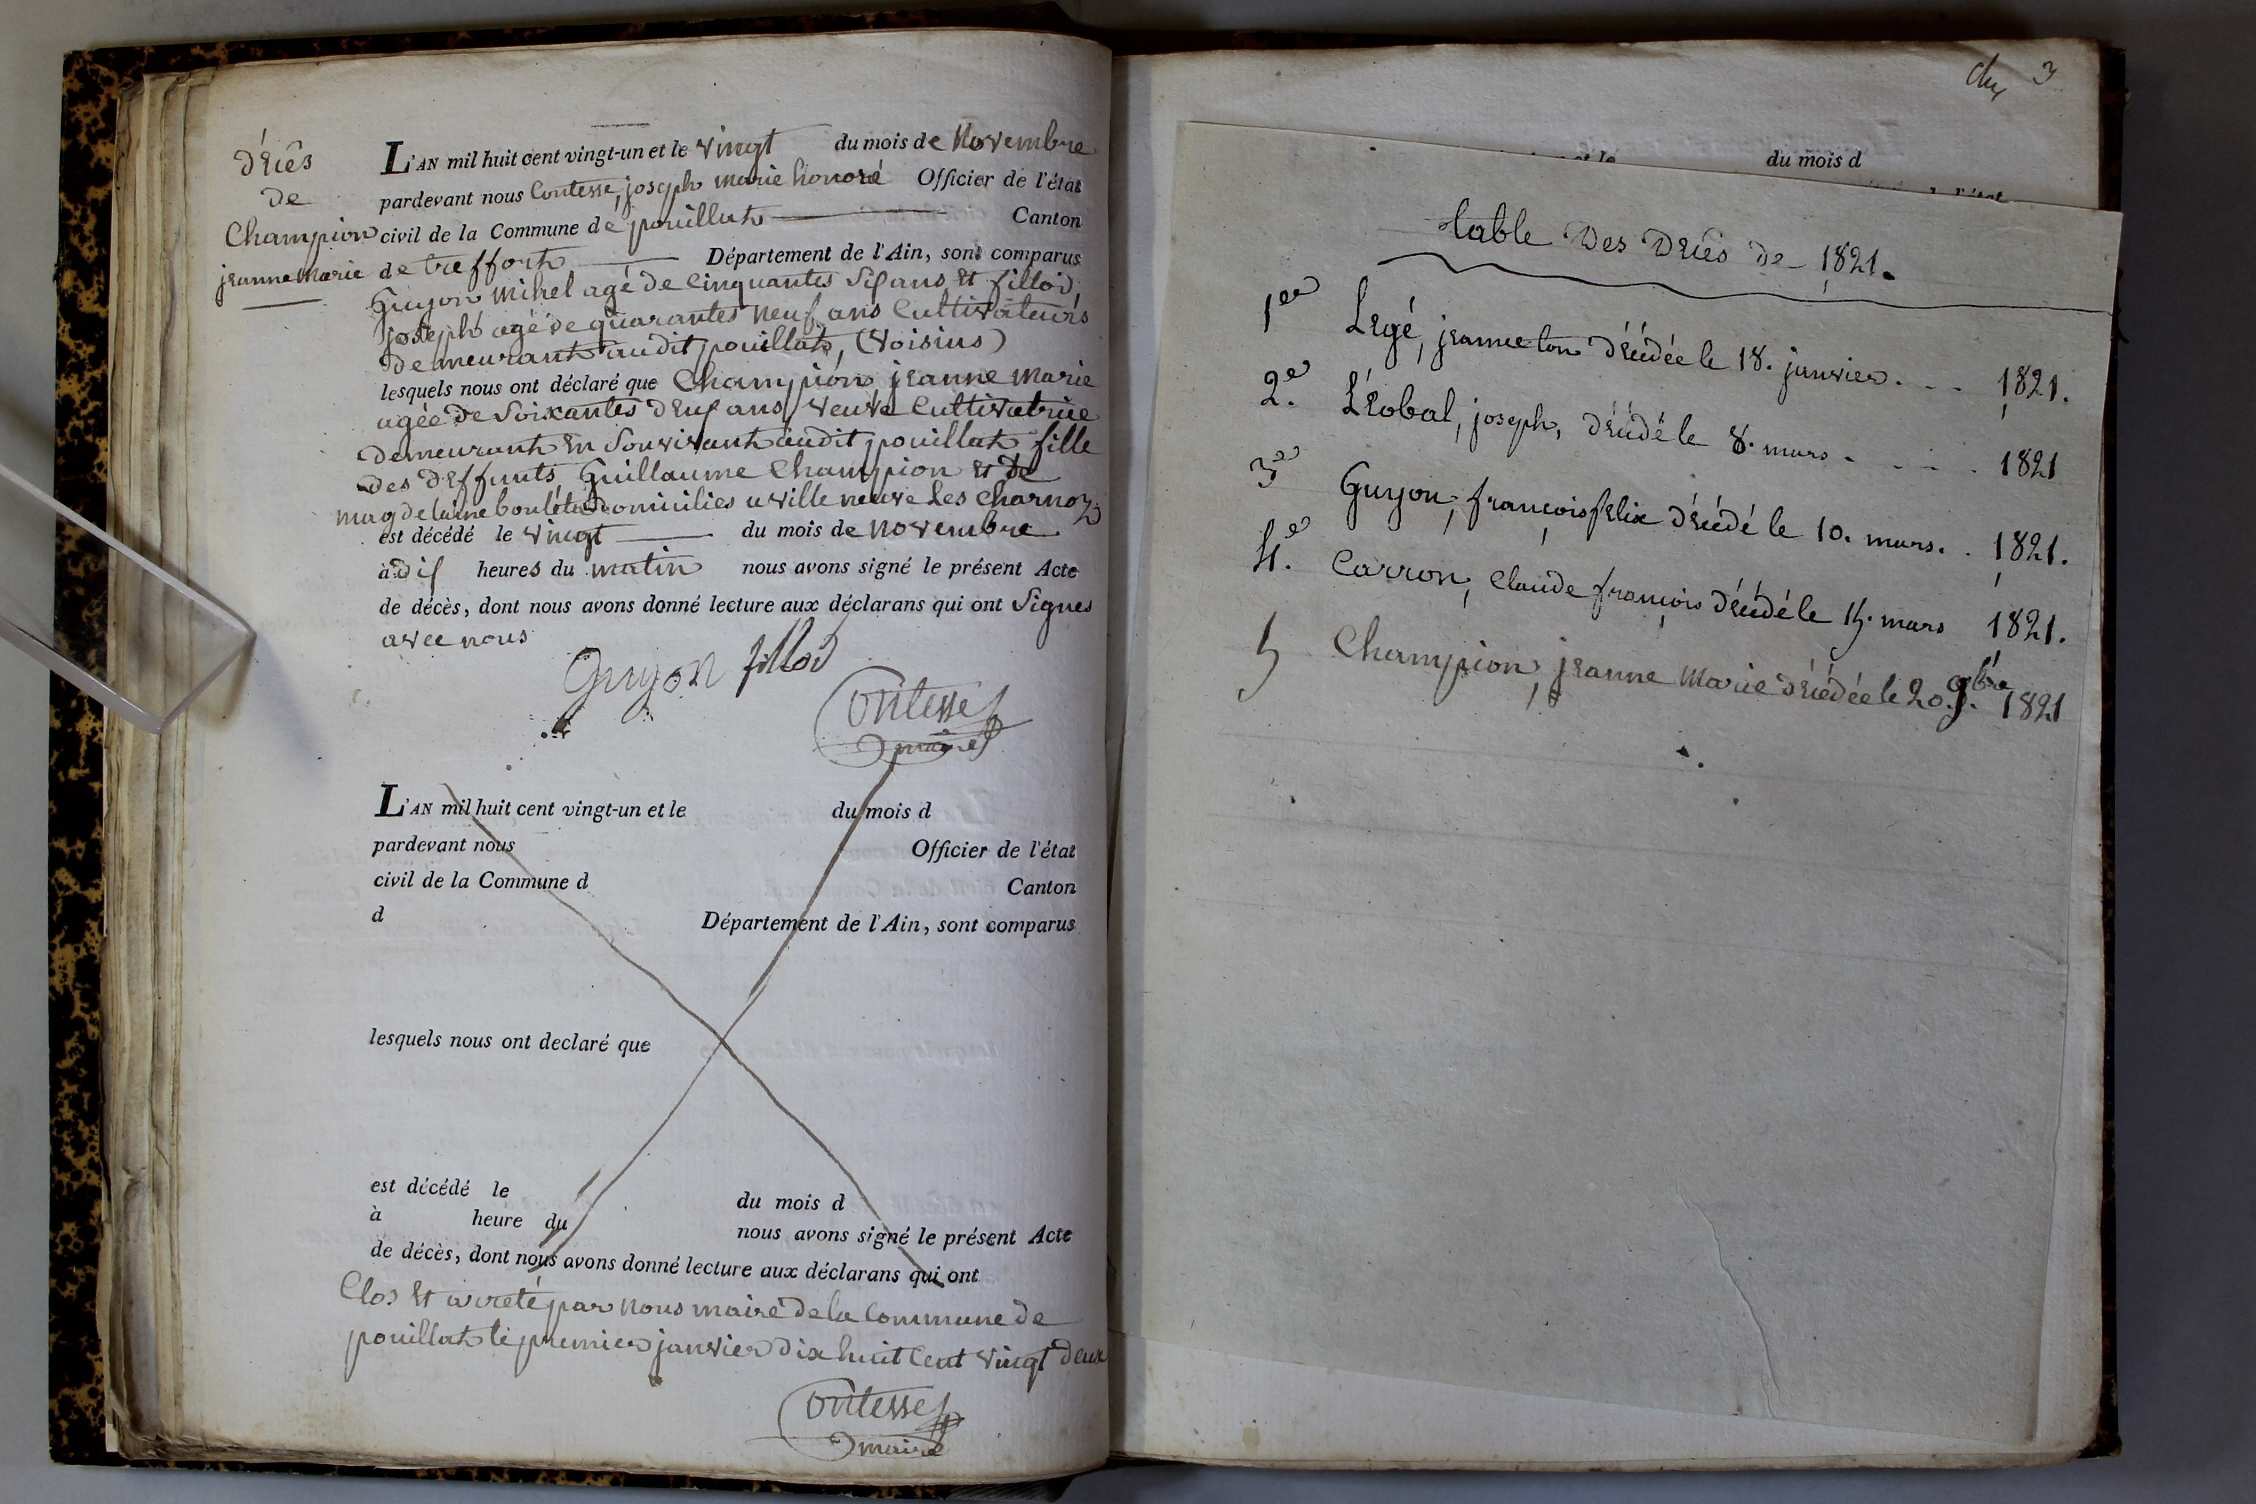 décès
de
Champion
jeanne Marie
L'AN mil huit cent vingt-un et le vingt du mois de Novembre
pardevant nous Contesse, joseph marie honoré Officier de l'état
civil de la Commune de pouillat Canton
de treffort Département de l'Ain, sont comparus
Guyon Mihel agé de Cinquantes Six ans et fillod
joseph agé de quarantes neuf ans Cultivateurs
Demeurant audit pouillat, (Voisins)
lesquels nous ont déclaré que Champion jeanne Marie
agée de Soixantes deux ans, veuve Cultivatrice
Demeurant En Souvivant audit pouillat fille
des deffunts Guillaume Champion et de
magdelaine domicilies a ville neuve les charnoz
est décédé le vingt du mois de novembre
à dix heures du matin nous avons signé le présent Acte
de décès, dont nous avons donné lecture aux déclarans qui ont Signes
avec nous
Guyon fillod
Contesse
maire
L'AN mil huit cent vingt-un et le du mois d
pardevant nous Officier de l'état
civil de la Commune d Canton
d Département de l'Ain, sont comparus
lesquels nous ont declaré que
est décédé le du mois d
à heure du nous avons signé le présent Acte
de décès, dont nous avons donné lecture aux déclarans qui ont
Clos et arreté par nous maire de la Commune de
pouillat le premier janvier dix huit Cent vingt deux
Contesse
maire
3
du mois d
table des décès de 1821.
1er Legé, jeanneton décédée le 18. janvier. - - 1821.
2.e Léobal, joseph, décédé le 8. mars - - - - 1821
3e Guyon, françois felix décédé le 10. mars. . 1821.
4.e Carron, Claude françois décédé le 15. mars 1821.
5 Champion, jeanne Marie décédée le 20. 9bre 1821